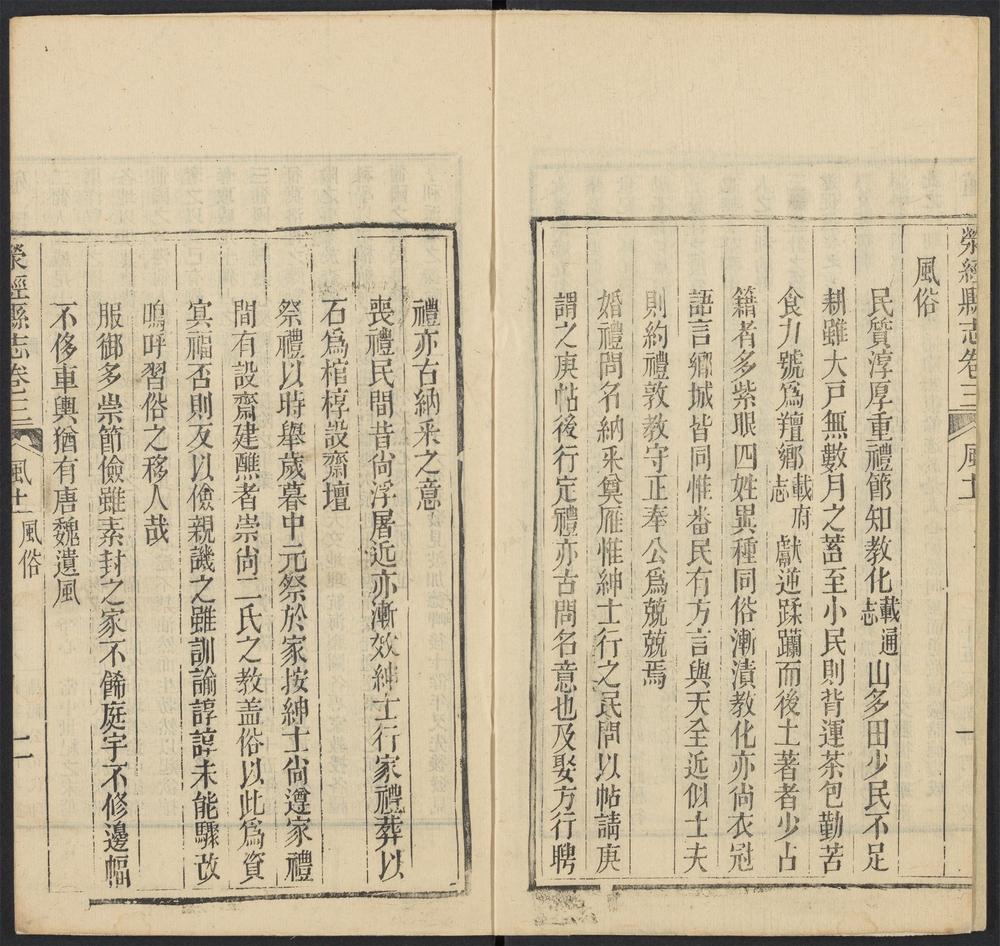 滎經縣志卷三
風土
一
風俗
民質淳厚重禮節知教化載通志山多田少民不足
耕雖大戶無數月之蓄至小民則背運茶包勤苦
食力號爲羶鄉載府志獻逆蹂躪而後土著者少占
籍者多紫眼四姓異種同俗漸漬教化亦尚衣冠
語言鄉城皆同惟番民有方言與天全近似士夫
則約禮敦教守正奉公爲兢兢焉
婚禮問名納采奠雁惟紳士行之民間以帖請庚
謂之庚帖後行定禮亦古問名意也及娶方行聘
禮亦古納采之意
喪禮民間昔尚浮屠近亦漸效紳士行家禮葬以
石爲棺椁設齋壇
祭禮以時舉歲暮中元祭於家按紳士尚遵家禮
間有設齋建醮者崇尚二氏之教盖俗以此爲資
冥福否則反以儉親譏之雖訓諭諄諄未能驟改
嗚呼習俗之移人哉
服御多崇節儉雖素封之家不餙庭宇不修邊幅
不侈車輿猶有唐魏遺風
滎經縣志卷三
風土
風俗
二